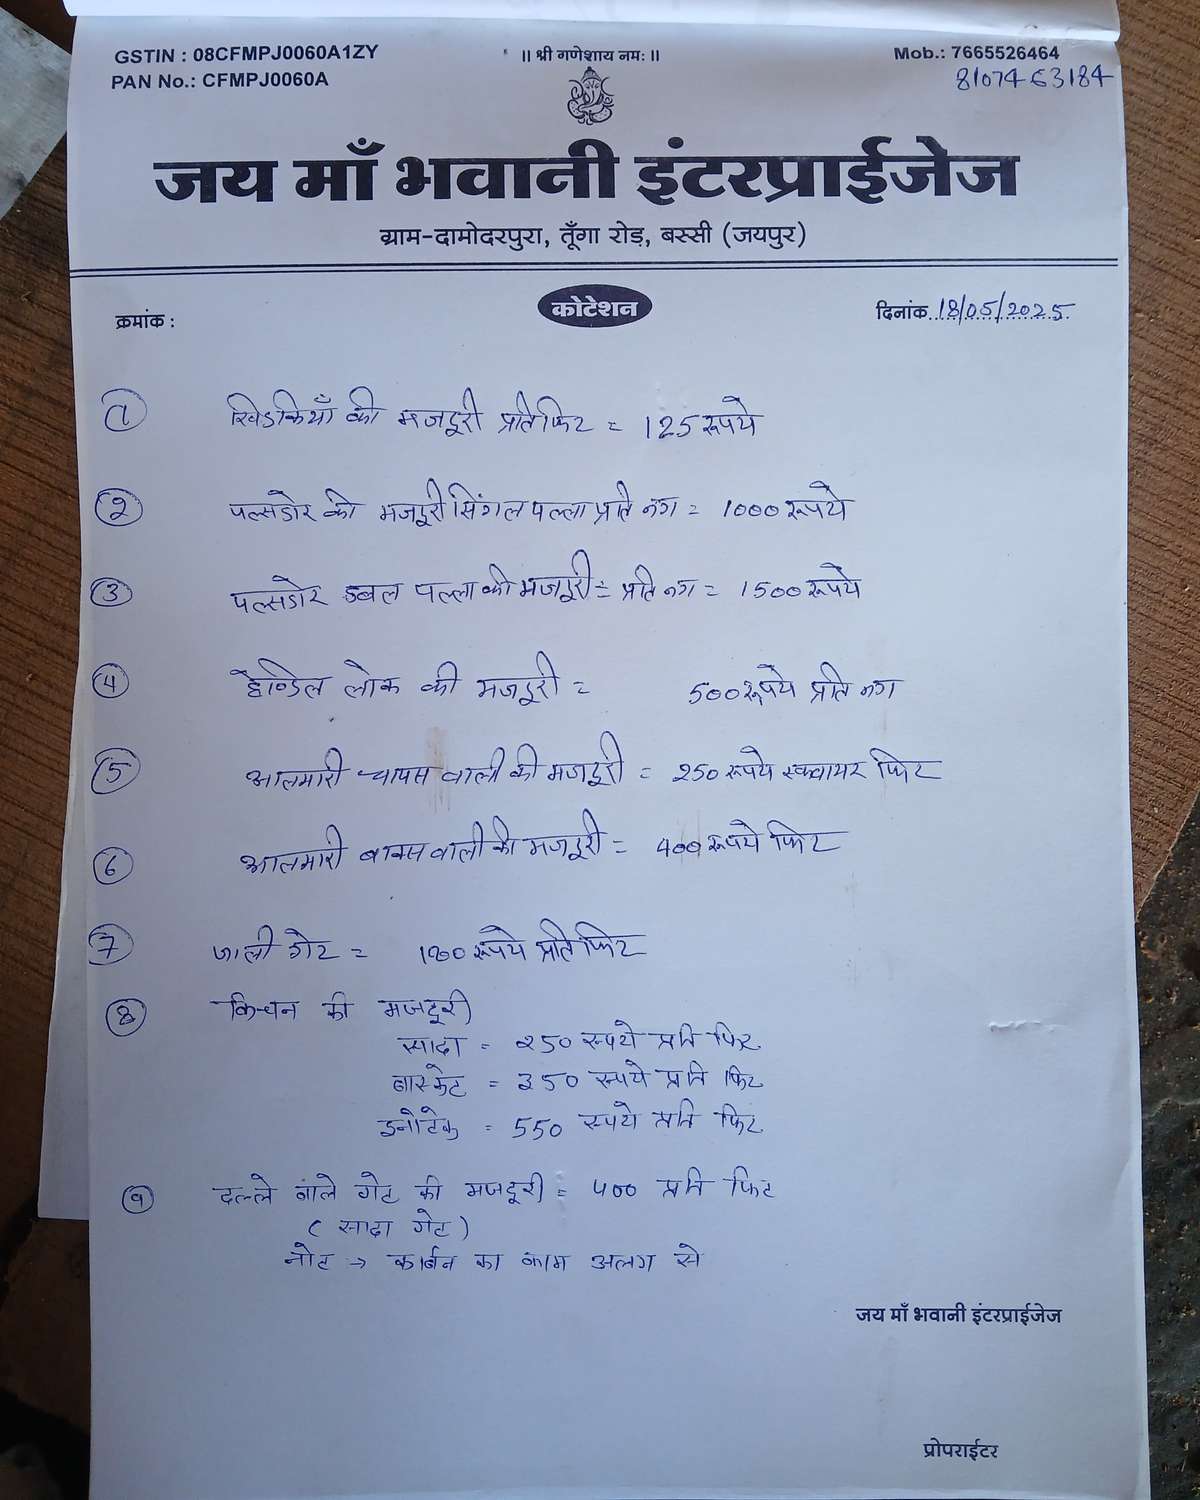 GSTIN : 08CFMPJ0060A1ZY
|| श्री गणेशाय नमः ||
Mob.: 7665526464
PAN No.: CFMPJ0060A
8107463184
जय माँ भवानी इंटरप्राईजेज
ग्राम-दामोदरपुरा, तूँगा रोड़, बस्सी (जयपुर)
कोटेशन
क्रमांक :
दिनांक 18/05/2025
1 खिडकियाँ की मजदूरी प्रति फिट = 125 रूपये
2 पल्सडोर की मजदूरी सिंगल पल्ला प्रति नग = 1000 रूपये
3 पल्सडोर डबल पल्ला की मजदूरी = प्रति नग = 1500 रूपये
4 हेण्डिल लोक की मजदूरी = 500 रूपये प्रति नग
5 आलमारी वाली की मजदूरी = 250 रूपये स्क्वायर फिट
6 आलमारी बाक्स वाली की मजदूरी = 400 रूपये फिट
7 जाली गेट = रूपये प्रति फिट
8 किचन की मजदूरी
सादा = 250 रुपये प्रति फिट
बास्केट = 350 रुपये प्रति फिट
इनोटेक = 550 रुपये प्रति फिट
9 दल्ले वाले गेट की मजदूरी = 400 प्रति फिट
( सादा गेट )
नोट → कार्बन का काम अलग से
जय माँ भवानी इंटरप्राईजेज
प्रोपराईटर